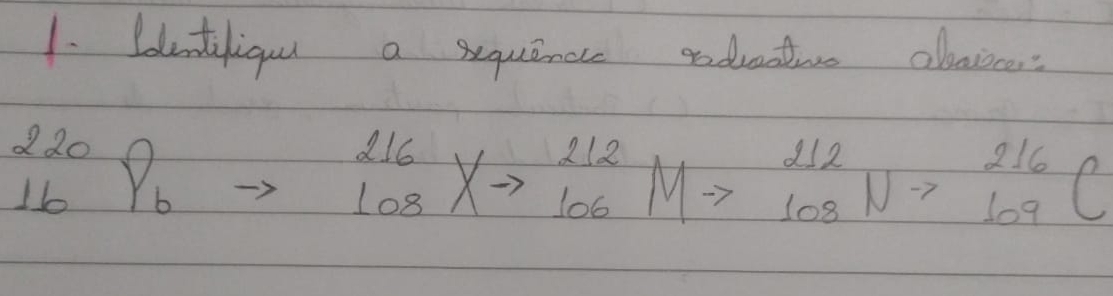 1. Identifique a sequência radioativa abaixo:
220 16 Pb → 216 108 X → 212 106 M → 212 108 N → 216 109 C